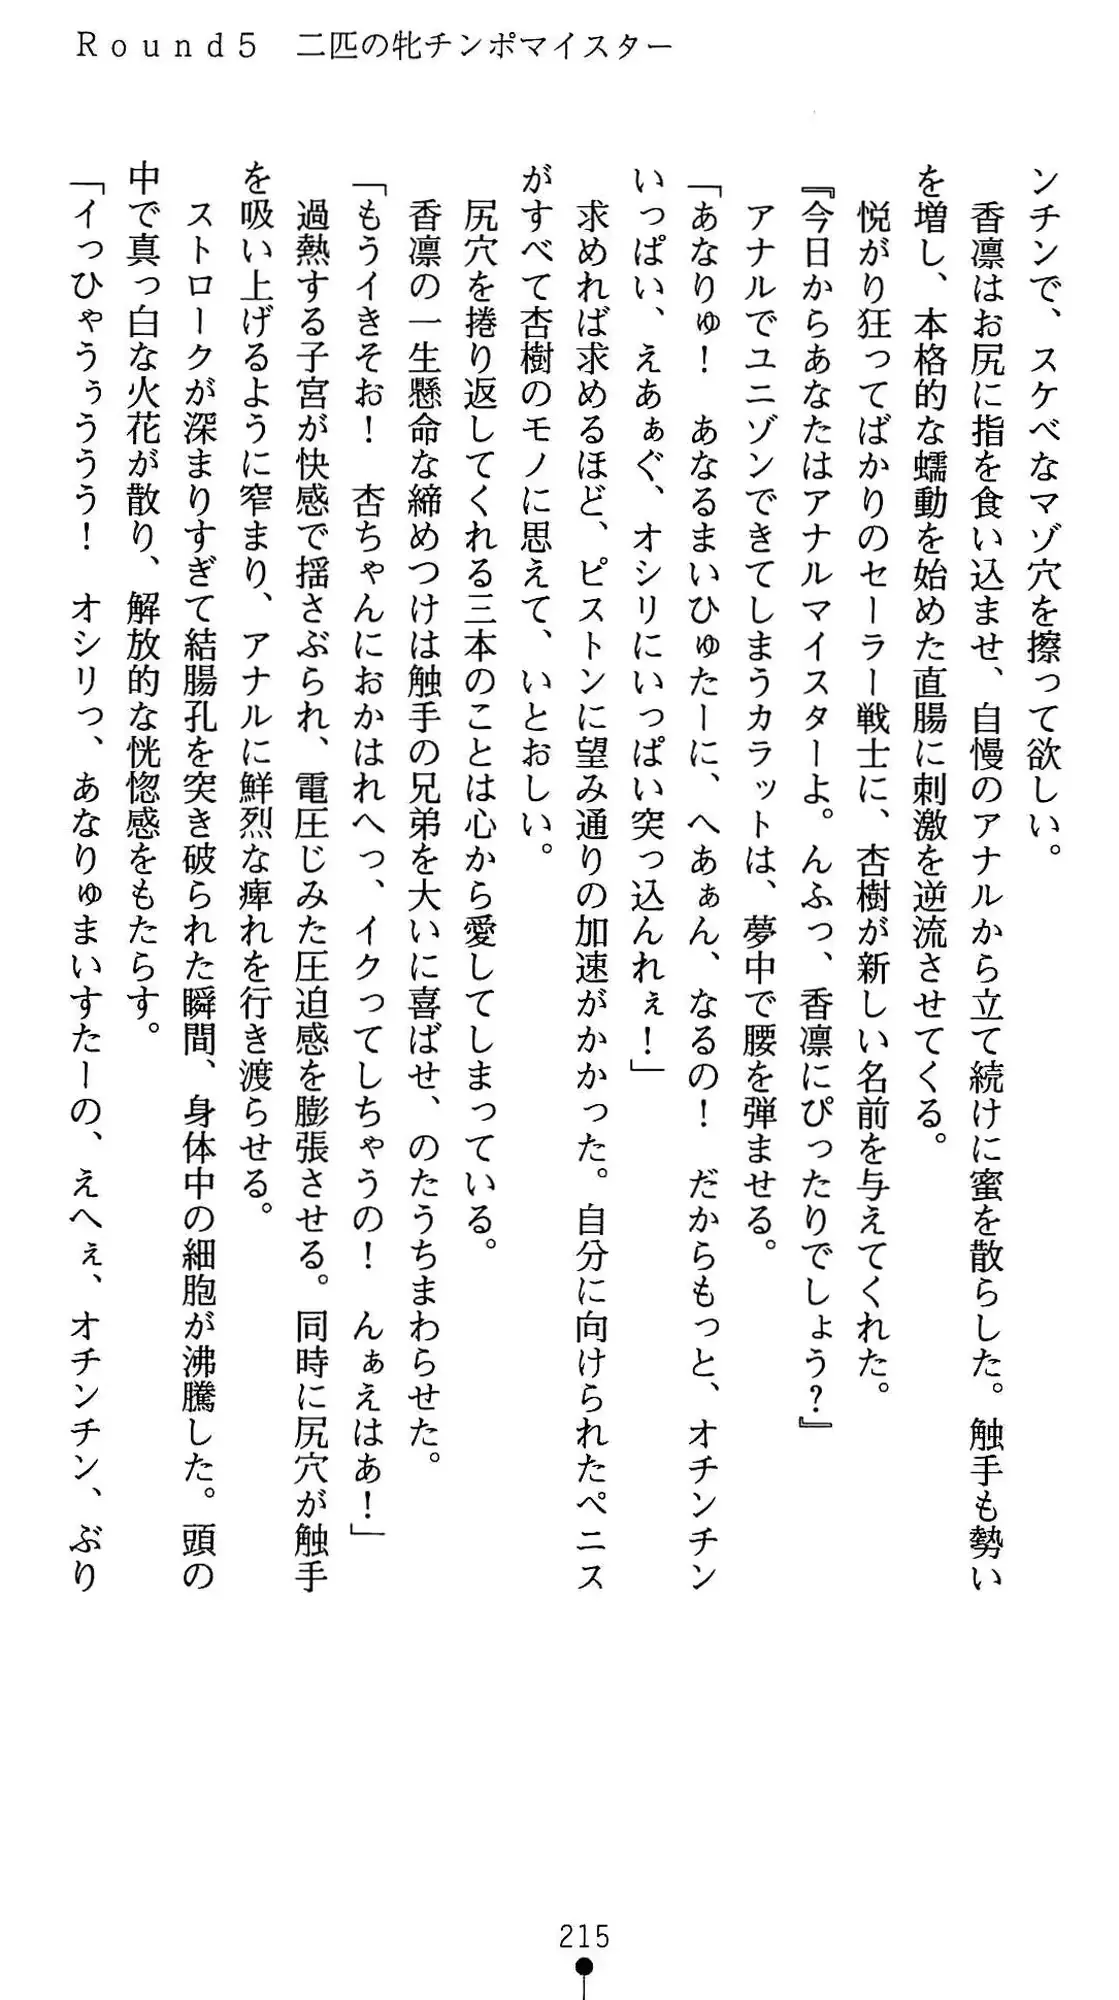 Round5 二匹の牝チンポマイスター
ンチンで、スケベなマゾ穴を擦って欲しい。
香凛はお尻に指を食い込ませ、自慢のアナルから立て続けに蜜を散らした。触手も勢い
を増し、本格的な蠕動を始めた直腸に刺激を逆流させてくる。
悦がり狂ってばかりのセーラー戦士に、杏樹が新しい名前を与えてくれた。
『今日からあなたはアナルマイスターよ。んふっ、香凛にぴったりでしょう?』
アナルでユニゾンできてしまうカラットは、夢中で腰を弾ませる。
「あなりゅ! あなるまいひゅたーに、へあぁん、なるの! だからもっと、オチンチン
いっぱい、えあぁぐ、オシリにいっぱい突っ込んれぇ!」
求めれば求めるほど、ピストンに望み通りの加速がかかった。自分に向けられたペニス
がすべて杏樹のモノに思えて、いとおしい。
尻穴を捲り返してくれる三本のことは心から愛してしまっている。
香凛の一生懸命な締めつけは触手の兄弟を大いに喜ばせ、のたうちまわらせた。
「もうイきそお! 杏ちゃんにおかはれへっ、イクってしちゃうの! んぁえはあ!」
過熱する子宮が快感で揺さぶられ、電圧じみた圧迫感を膨張させる。同時に尻穴が触手
を吸い上げるように窄まり、アナルに鮮烈な痺れを行き渡らせる。
ストロークが深まりすぎて結腸孔を突き破られた瞬間、身体中の細胞が沸騰した。頭の
中で真っ白な火花が散り、解放的な恍惚感をもたらす。
「イっひゃうぅううう! オシリっ、あなりゅまいすたーの、えへぇ、オチンチン、ぶり
215